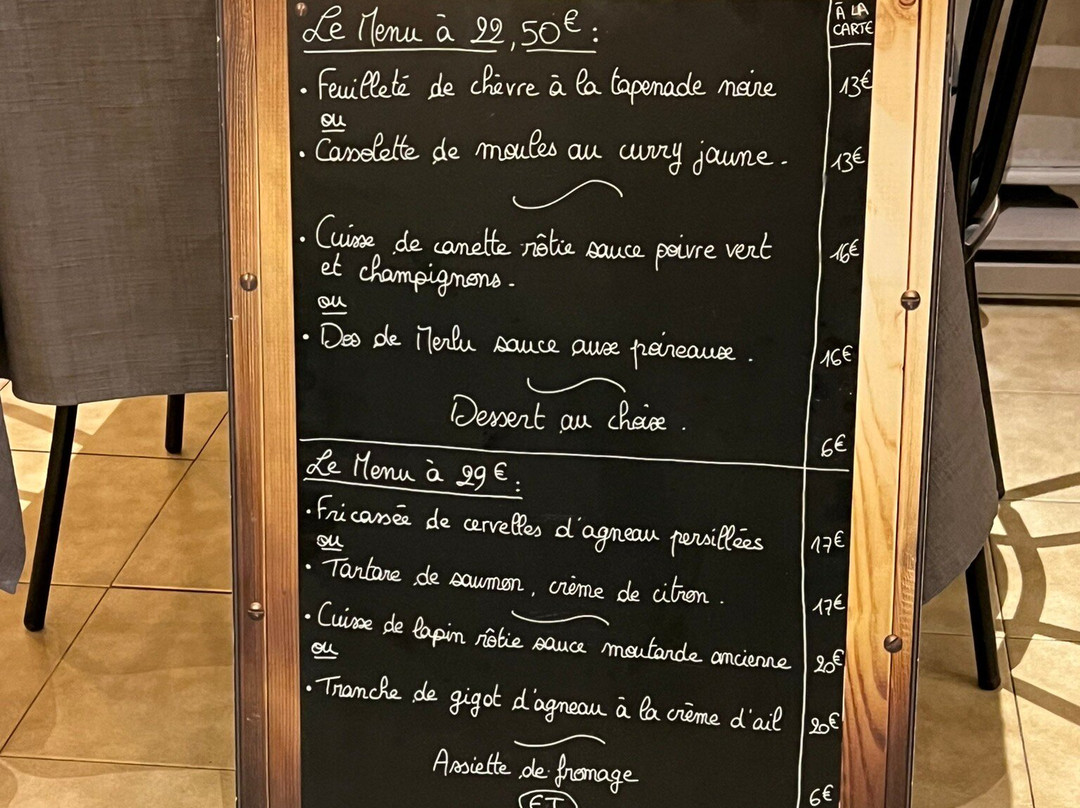 Le Menu à 22,50€ :
À LA
CARTE
• Feuilleté de chèvre à la tapenade noire 13€
ou
• Cassolette de moules au curry jaune. 13€
• Cuisse de canette rôtie sauce poivre vert 16€
et champignons.
ou
• Dos de Merlu sauce aux poireaux. 16€
Dessert au choix. 6€
Le Menu à 29€ :
• Fricassée de cervelles d'agneau persillées 17€
ou
• Tartare de saumon, crème de citron. 17€
• Cuisse de lapin rôtie sauce moutarde ancienne 20€
ou
• Tranche de gigot d'agneau à la crème d'ail 20€
Assiette de fromage 6€
ET